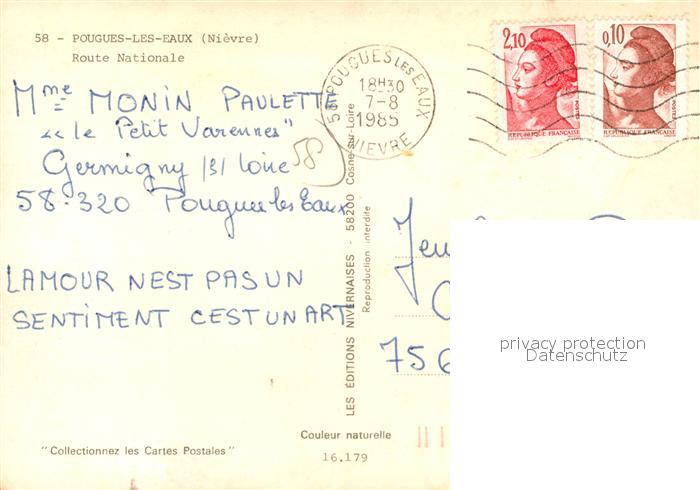 58 - POUGUES-LES-EAUX (Nièvre)
Route Nationale
Mme MONIN PAULETTE
"Le Petit Varennes"
Germigny /s/ Loire
58
58-320 Pougues les Eaux
LAMOUR NEST PAS UN
SENTIMENT CEST UN ART
"Collectionnez les Cartes Postales"
58 POUGUES LES EAUX
18H30
7-8
1985
NIEVRE
2,10
POSTES
REPUBLIQUE FRANÇAISE
0,10
POSTES
REPUBLIQUE FRANÇAISE
LES ÉDITIONS NIVERNAISES - 58200 Cosne-sur-Loire
Reproduction interdite
756
privacy protection
Datenschutz
Couleur naturelle
16.179